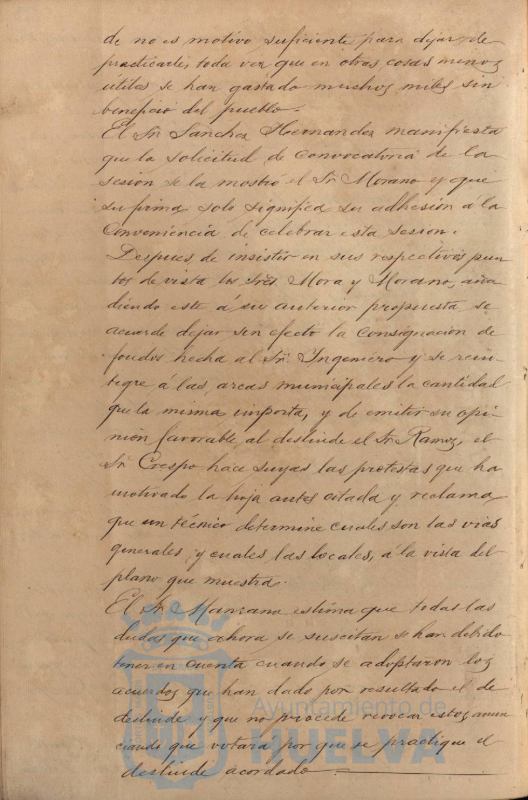 de no es motivo suficiente para dejar de
practicarle, toda vez que en otras cosas menos
útiles se han gastado muchos miles sin
beneficio del pueblo.
El Sr Sanchez Hernandez manifiesta
que la solicitud de convocatoria de la
sesion se la mostró el Sr Morano y que
su firma solo significa su adhesión á la
Conveniencia de celebrar esta sesion.
Despues de insistir en sus respectivos pun
tos de vista los Sres. Mora y Morano, aña
diendo este á su anterior propuesta se
acuerde dejar sin efecto la Consignacion de
fondos hecha al Sr. Ingeniero y se rein-
tegre á las arcas municipales la cantidad
que la misma importa, y de emitir su opi-
nión favorable al deslinde el Sr Ramos, el
Sr Crespo hace suyas las protestas que ha
motivado la hoja antes citada y reclama
que un técnico determine cuales son las vias
generales y cuales las locales, á la vista del
plano que muestra.
El Sr Manzano estima que todas las
dudas que ahora se suscitan se han debido
tener en cuenta cuando se adoptaron los
acuerdos que han dado por resultado el de
deslinde y que no procede revocar estos anun
ciando que votará por que se practique el
deslinde acordado.
Ayuntamiento de
HUELVA